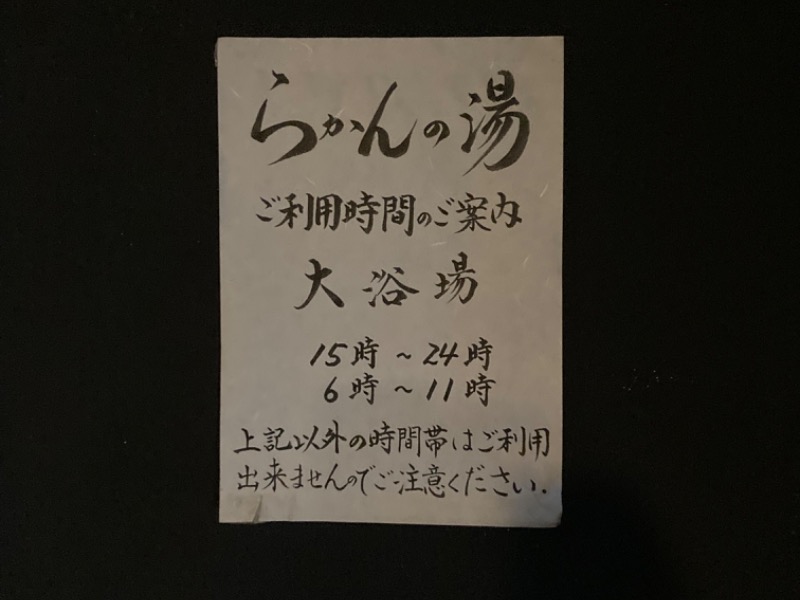 らかんの湯
ご利用時間のご案内
大浴場
15時～24時
6時～11時
上記以外の時間帯はご利用
出来ませんのでご注意ください.